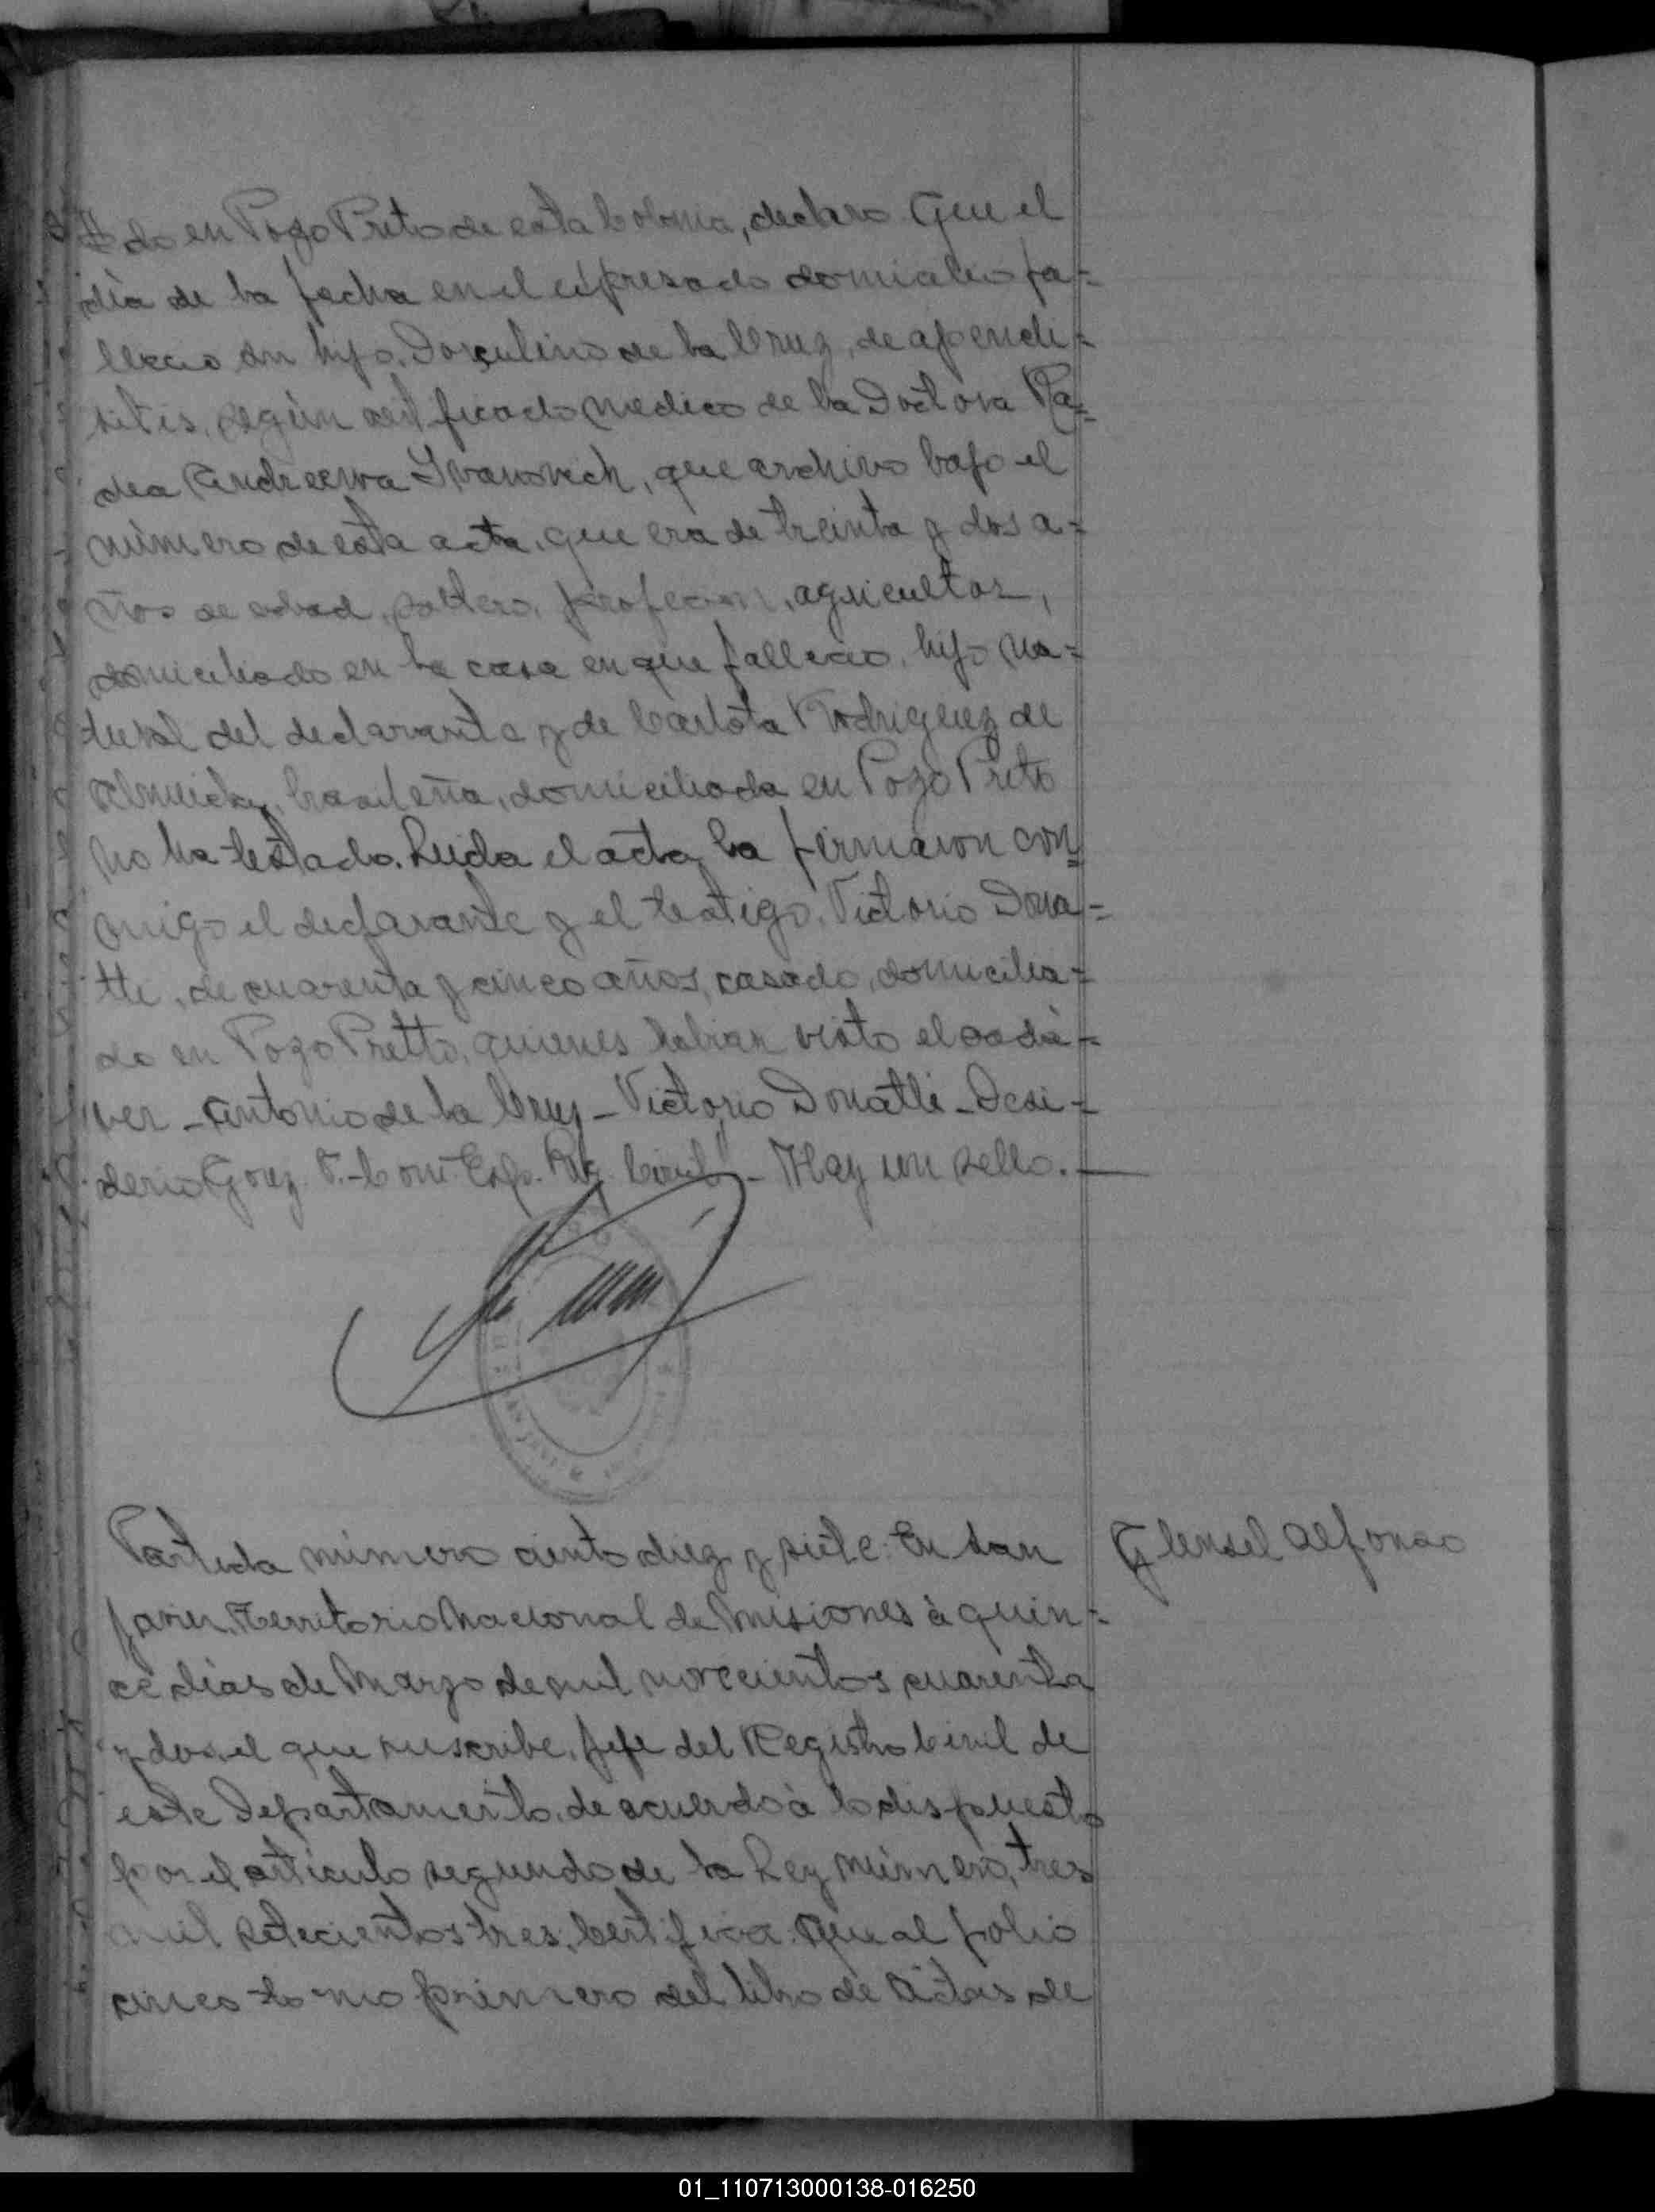 do en Pozo Preto de esta Colonia, declaro Que el
dia de la fecha en el expresado domicilio fa=
llecio su hijo, de la Cruz, de apendi=
sitis, según certificado medico de la Doctora Ra=
dea Andreewa Ivanovich, que archivo bajo el
número de esta acta, que era de treinta y dos a=
ños de edad, soltero, profecion, agricultor,
domiciliado en la casa en que fallecio, hijo na=
tural del declarante y de Carlota Rodriguez de
Almeida, brasileña, domiciliada en Pozo Preto
no ha testado. Leida el acta, la firmaron con=
migo el declarante y el testigo, Victorio Dona=
tti, de cuarenta y cinco años, casado, domicilia=
do en Pozo Pretto, quienes habian visto el cadá=
ver - Antonio de la Cruz - Victorio Donatti - Desi-
derio Gonz. V. - Com. Esp. Reg. Civil" - Hay un sello. -
Partida número ciento diez y siete: En San
Javier, Territorio Nacional de Misiones à quin=
ce dias de Marzo de mil novecientos cuarenta
y dos, el que suscribe, Jefe del Registro Civil de
este Departamento, de acuerdo à lo dispuesto
por el articulo segundo de la Ley número, tres
mil setecientos tres, Certifica: Que al folio
cinco tomo primero del libro de Actas de
Glensel Alfonso
01_110713000138-016250